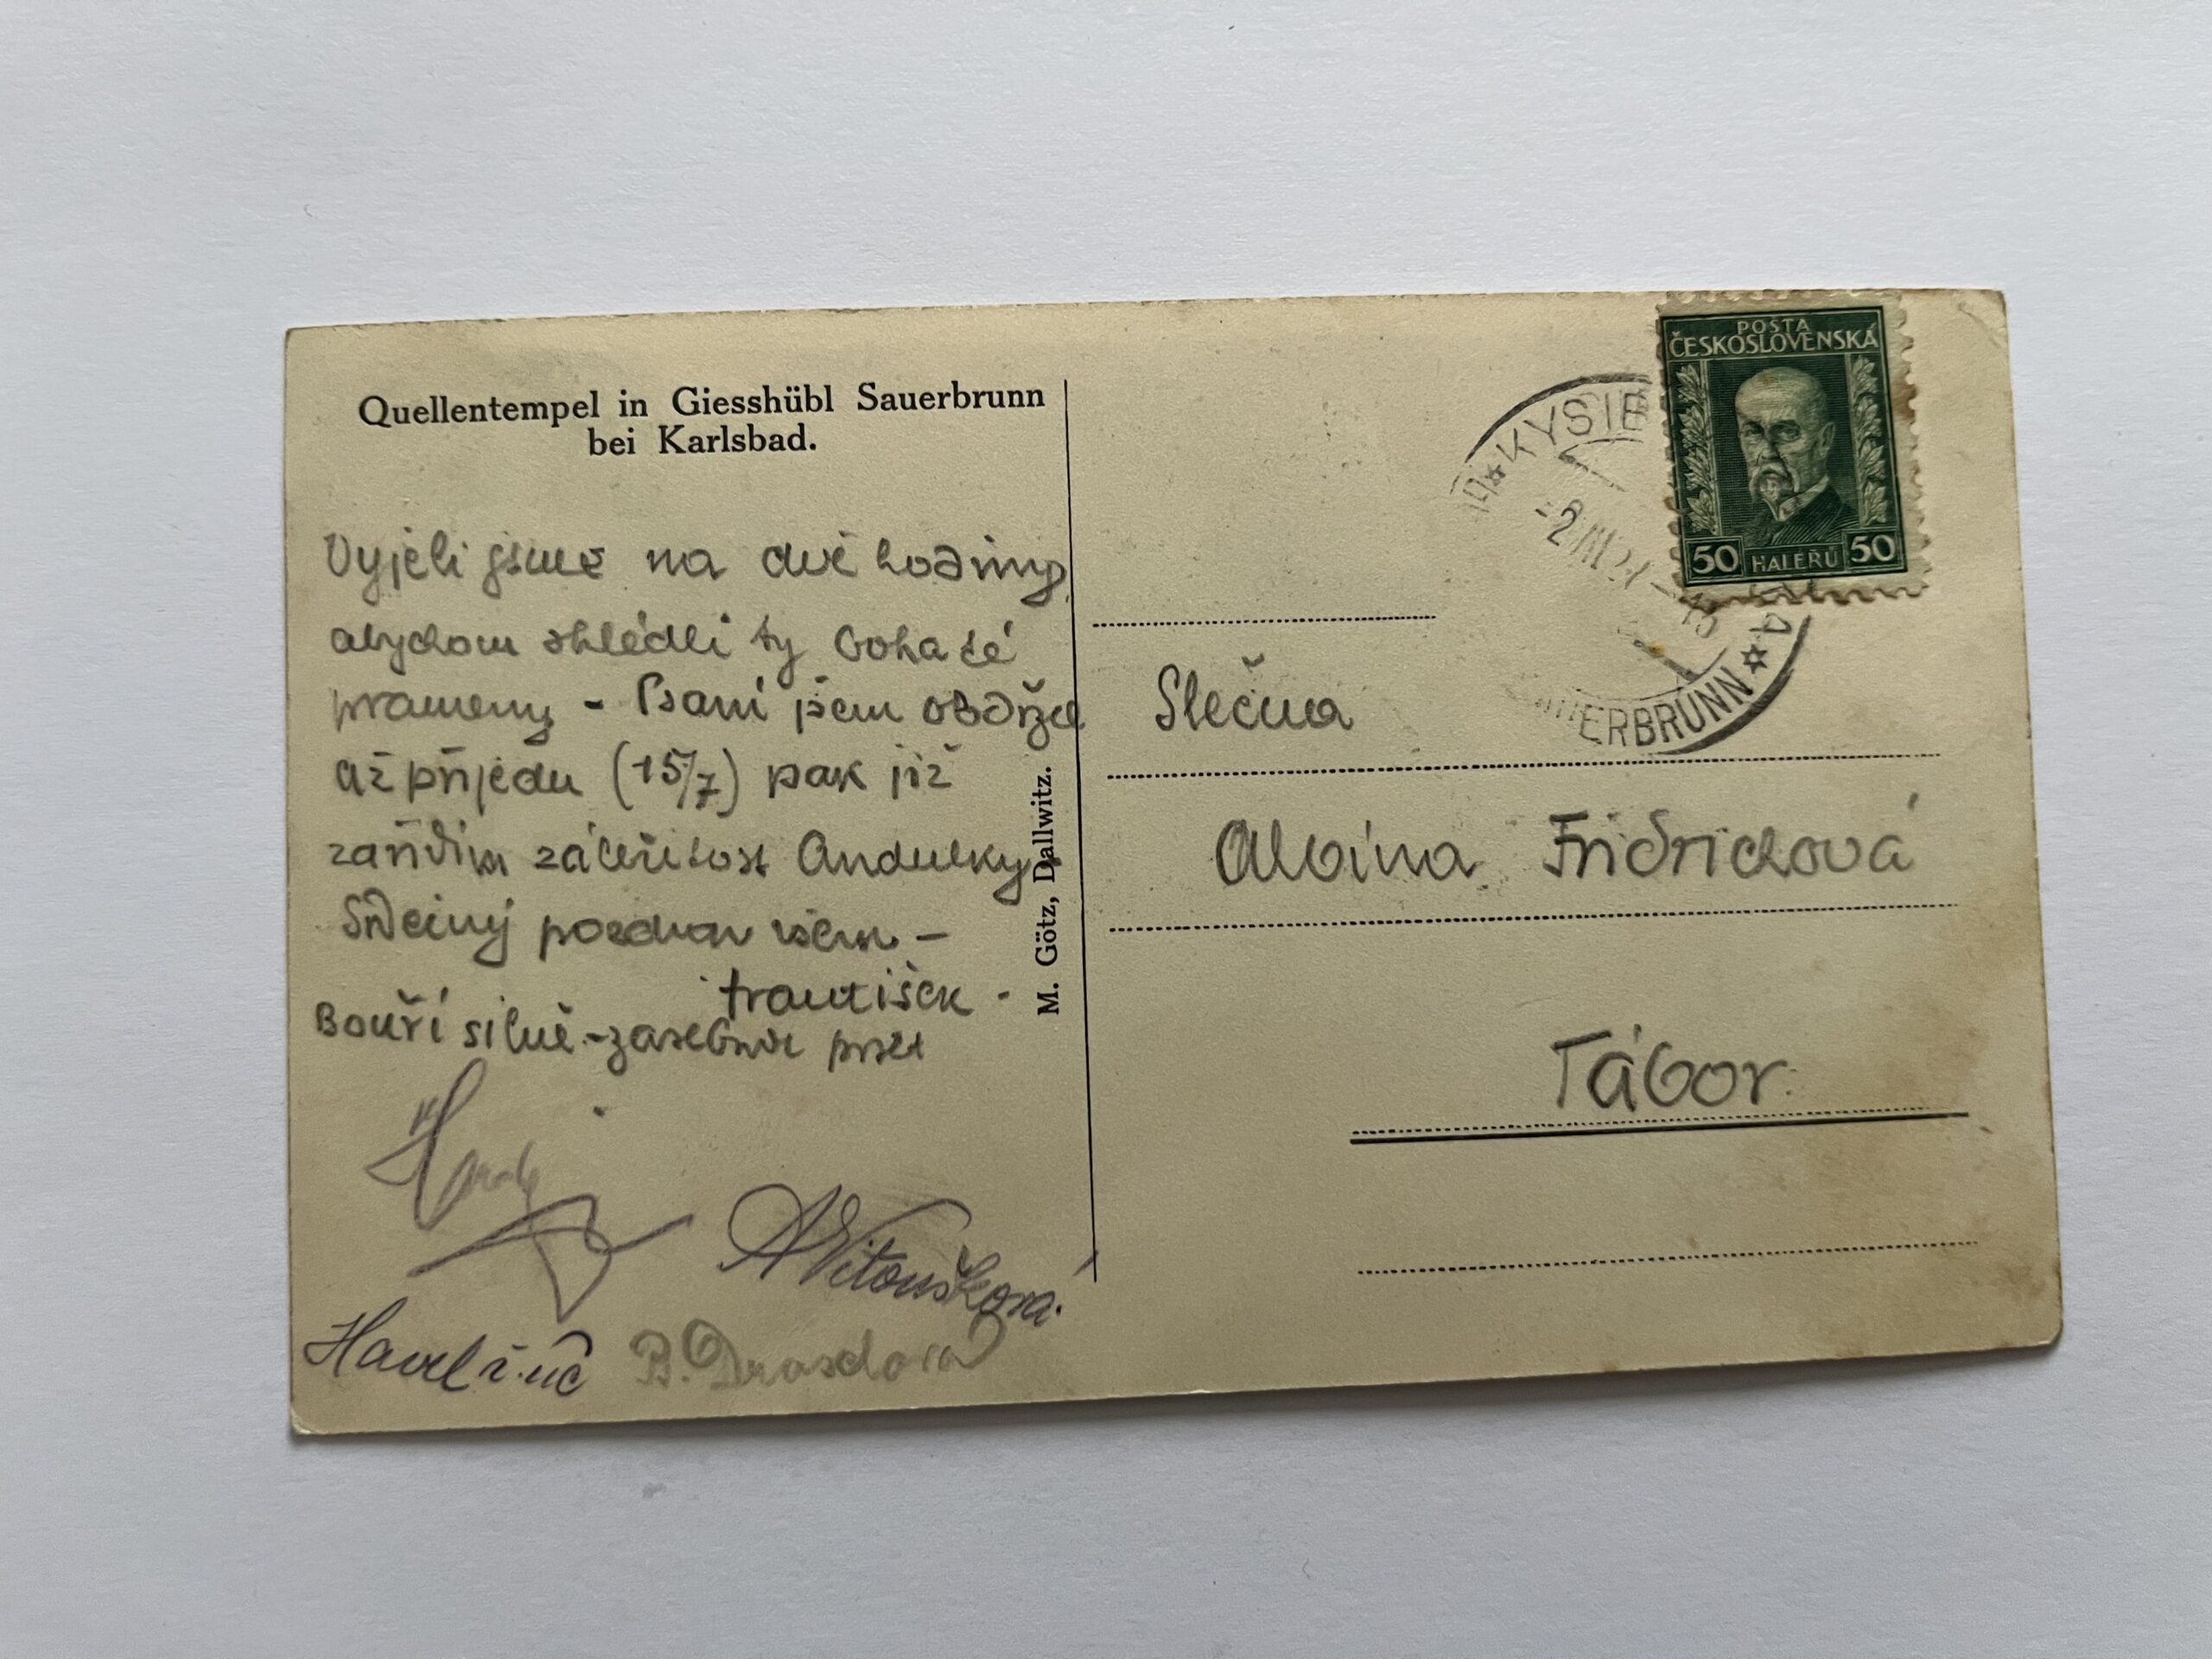 Quellentempel in Giesshübl Sauerbrunn
bei Karlsbad.
Vyjeli jsme na dvě hodiny
abychom shlédli ty bohaté
prameny - Psaní jsem obdržel
až přijedu (15/7) pak již
zařídím záležitost Andulky
Srdečný pozdrav všem -
František -
Bouří silně - prší
AVitoušková.
B. Drasdova
M. Götz, Dallwitz.
POŠTA
ČESKOSLOVENSKÁ
50 HALÉŘŮ 50
KYSIB
UERBRUNN
Slečna
Albína Fridrichová
Tábor.